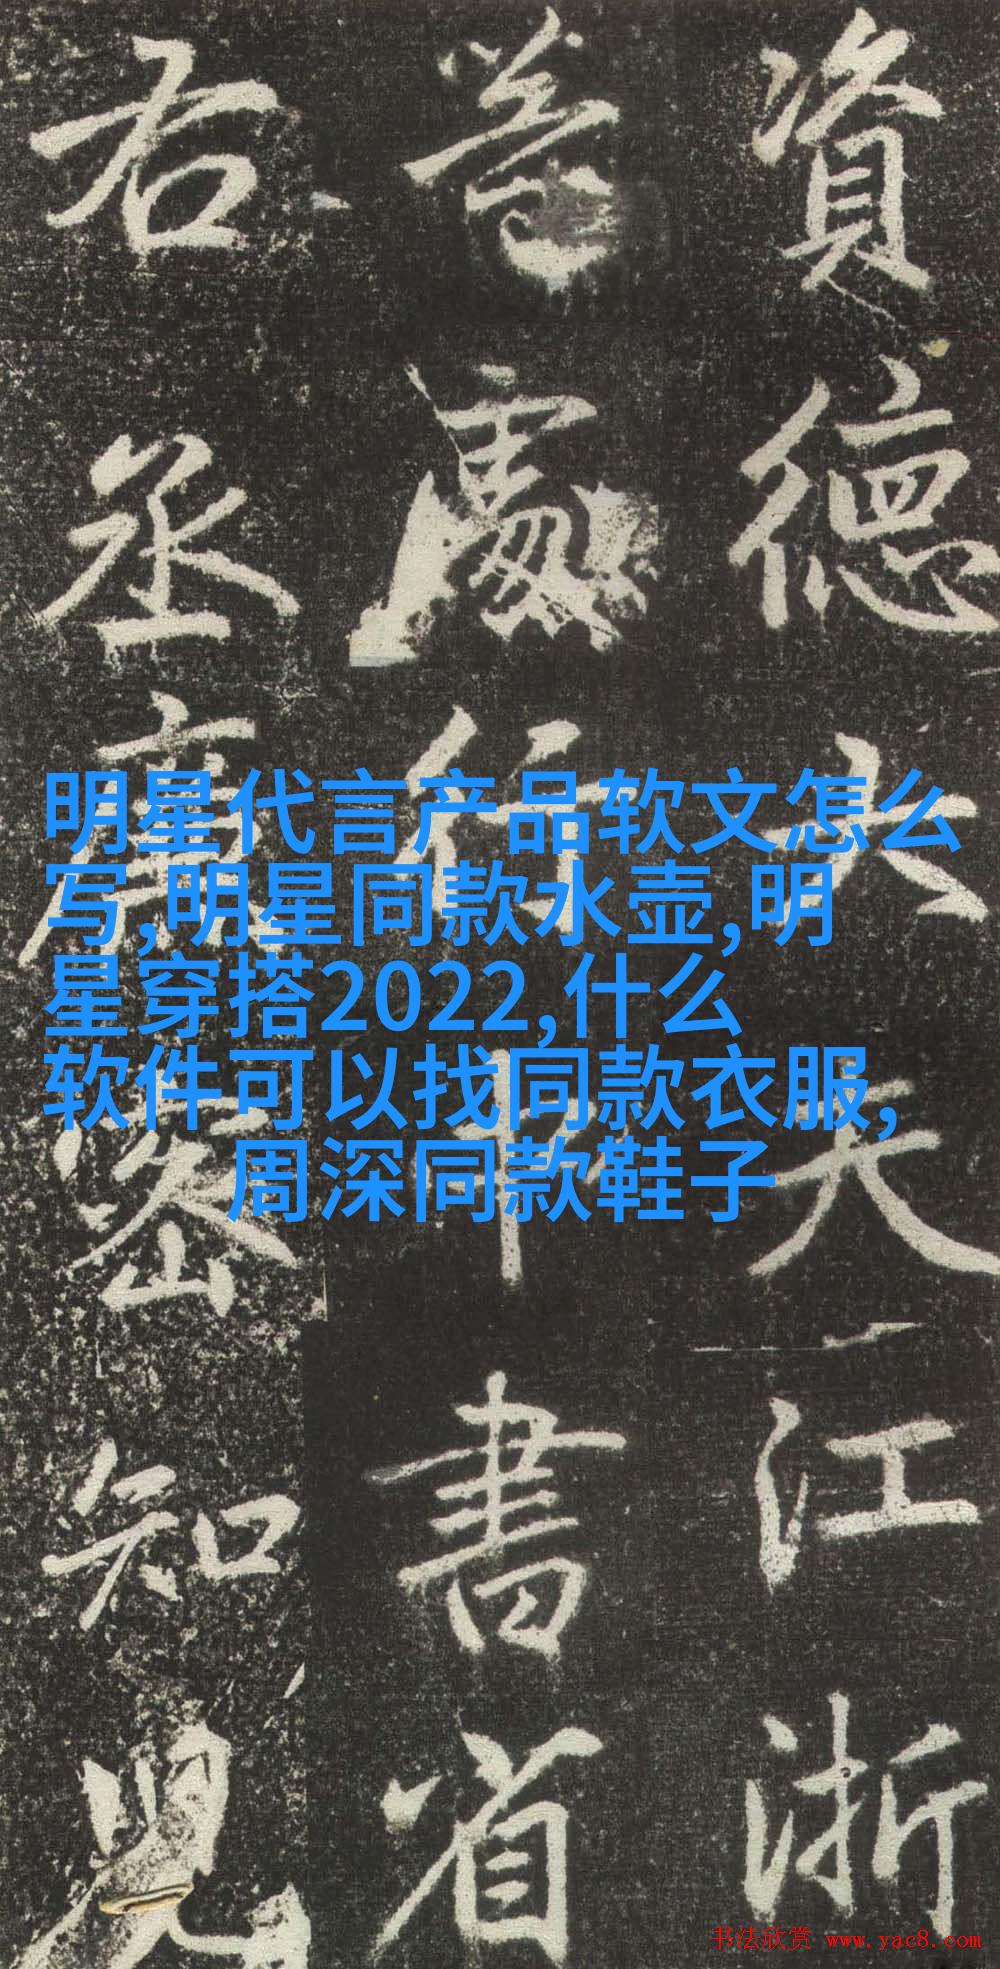 資德大夫江浙
等處行中書省
右丞廉密知兒
明星代言产品软文怎么
写,明星同款水壶,明
星穿搭2022,什么
软件可以找同款衣服,
周深同款鞋子
书法欣赏 www.yac8.com